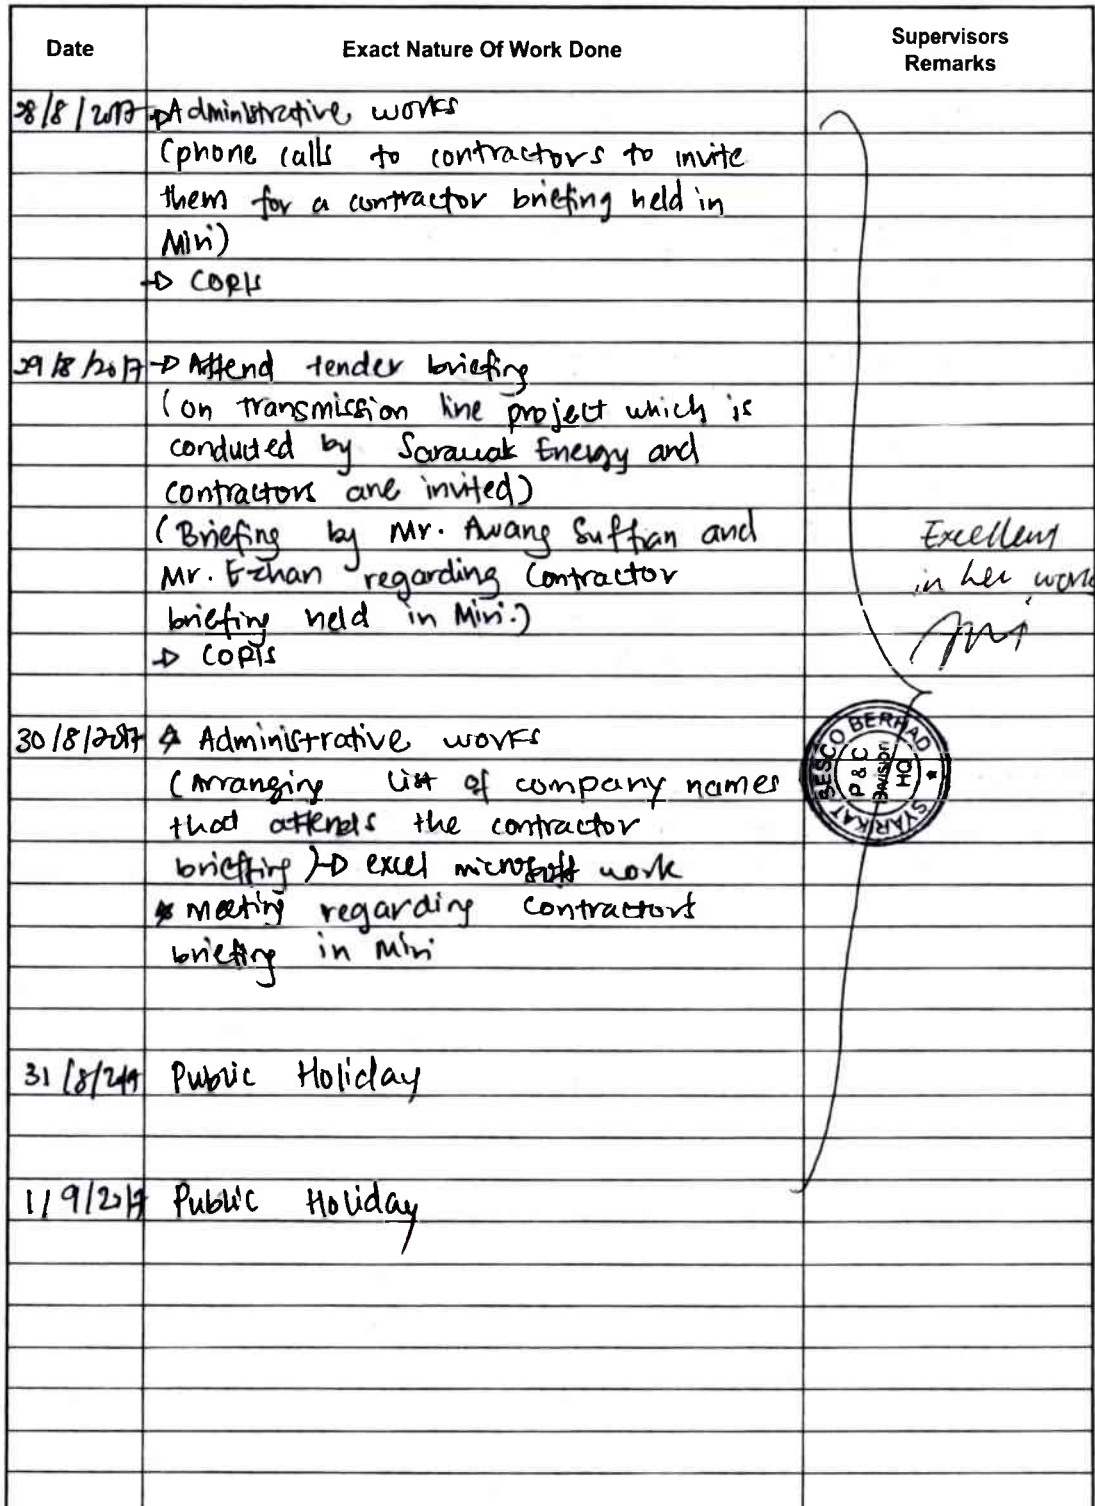 Date Exact Nature Of Work Done Supervisors
Remarks
28/8/2017 → Administrative works
(phone calls to contractors to invite
them for a contractor briefing held in
Miri)
→ CORIS
29/8/2017 → Attend tender briefing
(on transmission line project which is
conducted by Sarawak Energy and
contractors are invited)
(Briefing by Mr. Awang Suffian and
Mr. Ezhan regarding Contractor
briefing held in Miri.)
→ CORIS
Excellent
in her work
30/8/2017 Administrative works
(Arranging list of company names
that attends the contractor
briefing) → excel microsoft work
Meeting regarding contractors
briefing in Miri
SYARIKAT SESCO BERHAD
P & C
Division
HQ
31/8/2017 Public Holiday
1/9/2017 Public Holiday